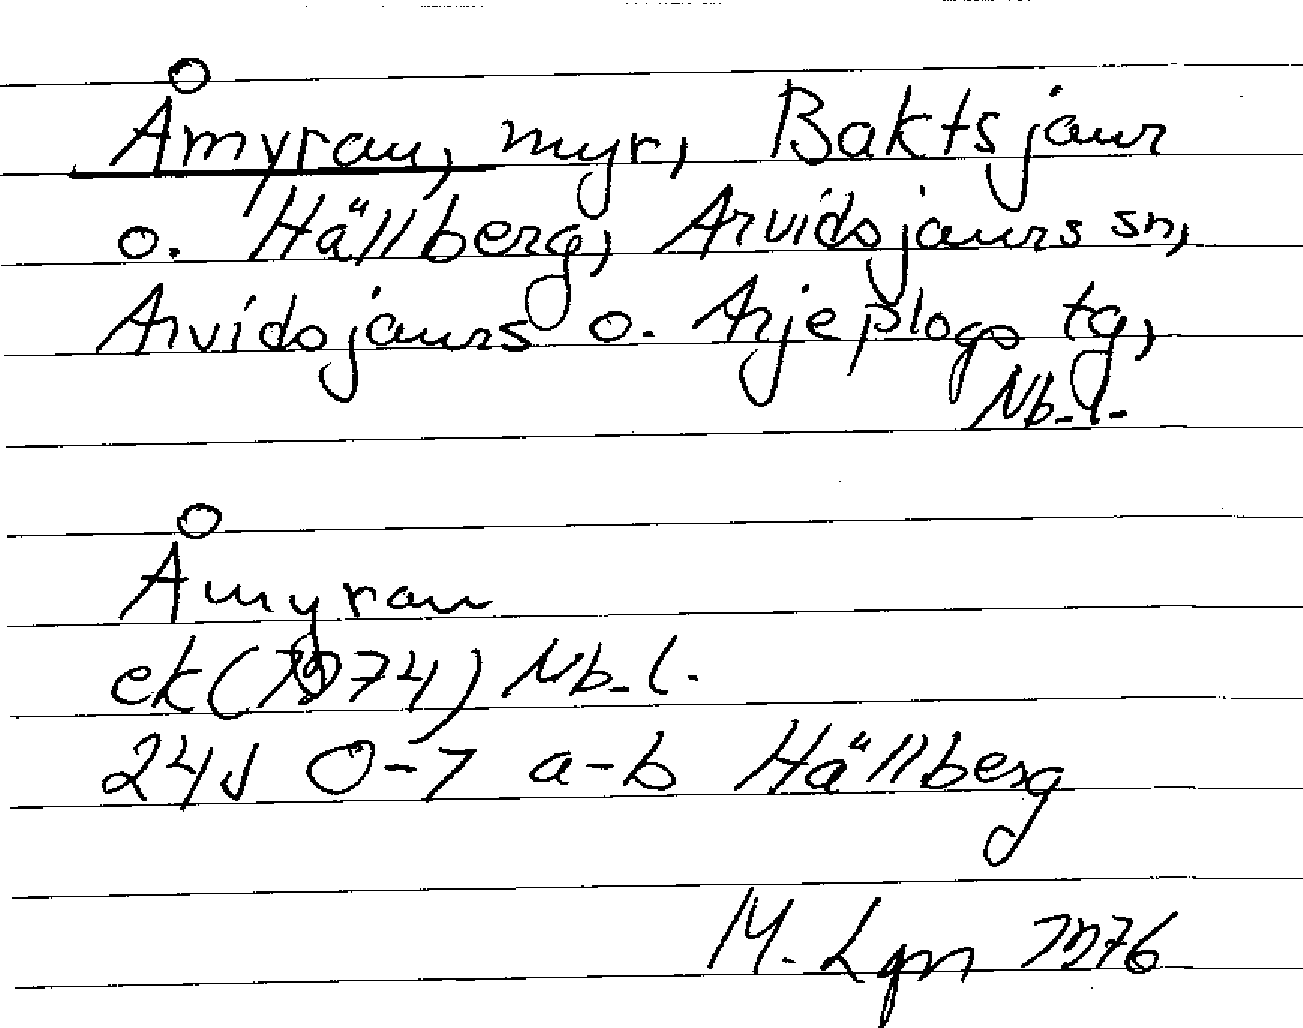 Åmyran, myr, Baktsjaur
o. Hällberg, Arvidsjaurs sn,
Arvidsjaurs o. Arjeplogs tg,
Nb. l.
Åmyran
ek (1974) Nb. l.
24J 0-1 a-b Hällberg
M. Lgn 1976